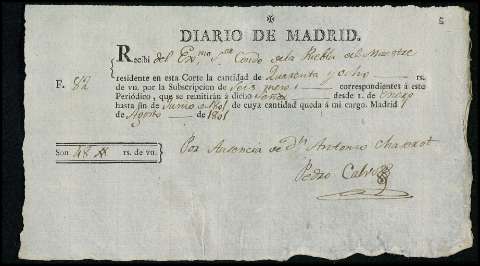 DIARIO DE MADRID.
Recibí del Ex.mo S.or Conde de la Puebla del Maestre
residente en esta Corte la cantidad de Quarenta y ocho rs.
F. de vn. por la Subscripcion de Seis meses correspondientes á este
Periódico, que se remitirán á dicho Señor desde 1. de Enero
hasta fin de Junio de 1801 de cuya cantidad queda á mi cargo. Madrid
de Agosto de 1801
Son 48 rs. de vn.
Por Ausencia de Dn Antonio
Pedro Calvo